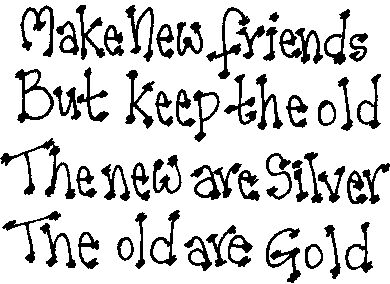 Make New friends
But keep the old
The new are Silver
The old are Gold